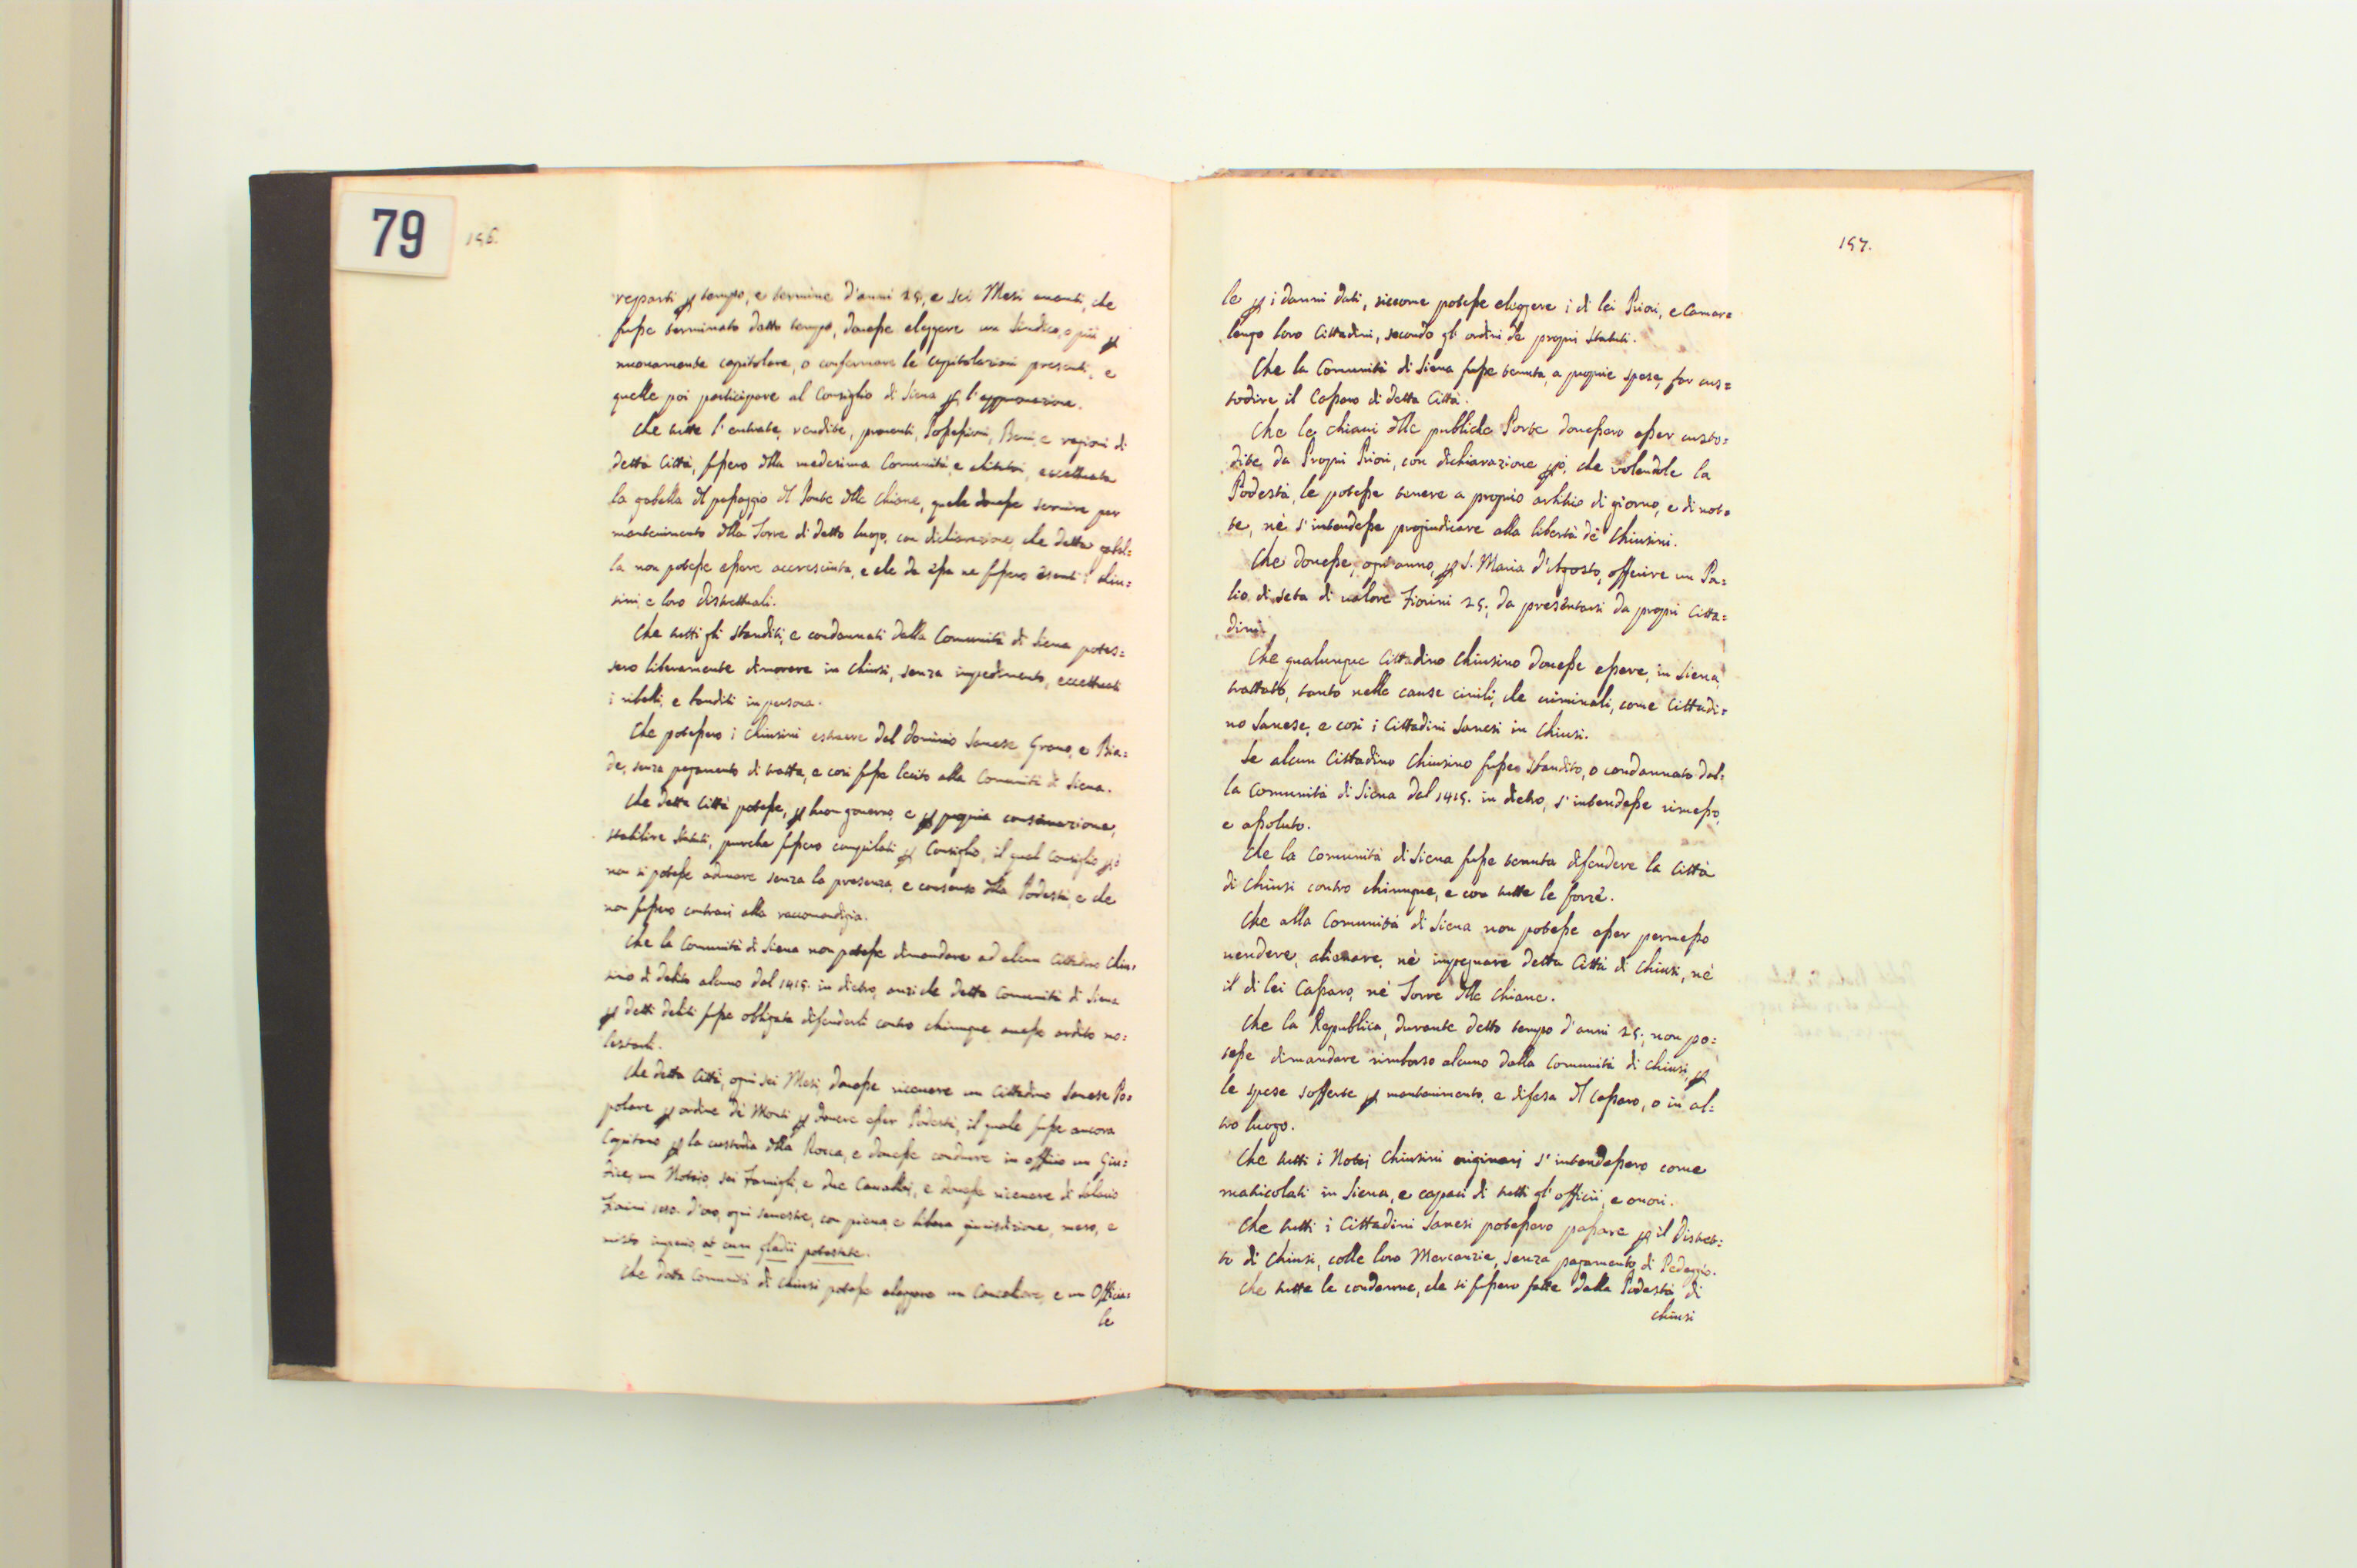 79
156.
reparti p tempo, e termine d'anni 25, e sei Mesi auanti, che
fusse terminato detto tempo, douesse eleggere un Sindico, o più p
nuouamente capitolare, o confermare le capitolazioni presenti, e
quelle poi participare al Consiglio di Siena p l'approuazione.
Che tutte l'entrate, rendite, prouenti, Possessioni, Beni, e ragioni di
detta Città, fussero dlla medesima Comunità, e eccettuata
la gabella dl passaggio dl Ponte dlle Chiane, quale douesse seruire per
mantenimento dlla Torre di detto luogo, con dichiarazione, che detta gabel=
la non potesse essere accresciuta, e che da essa ne fussero esenti i Chiu=
sini, e loro distrettuali.
Che tutti gli sbanditi, e condannati dalla Comunità di Siena potes=
sero liberamente dimorare in Chiusi, senza impedimento, eccettuati
i ribelli, e banditi in persona.
Che potessero i Chiusini estraere dal dominio Sanese Grano, e Bia=
de, senza pagamento di tratta, e così fusse lecito alla Comunità di Siena.
Che detta Città potesse, p buon gouerno, e p propria conseruazione,
stabilire Statuti, purche fussero compilati p Consiglio, il qual Consiglio pò
non si potesse adunare senza la presenza, e consenso dlla Podestà, e che
non fussero contrarj alla raccomandigia.
Che la Comunità di Siena non potesse dimandare ad alcun Cittadino Chiu=
sino di delito alcuno dal 1415. in dietro, anzi che detta Comunità di Siena
p detti deliti fusse obbligata difenderli contro chiunque auesse ardito mo=
lestarli.
Che detta Città, ogni sei Mesi, douesse riceuere un Cittadino Sanese Po=
polare p ordine de' Monti p douere esser Podestà, il quale fusse ancora
Capitano p la custodia dlla Rocca, e douesse condurre in offitio un Giu=
dice, un Notaio, sei Famigli, e due Caualli, e douesse riceuere di Salario
Fiorini d'oro, ogni semestre, con piena, e libera giurisdizione, mero, e
misto imperio, et cum gladii potestate.
Che detta Comunità di Chiusi potesse eleggere un Cancelliere, e un Offizia=
le
157.
le p i danni dati, siccome potesse eleggere i di lei Priori, e Camar=
lengo loro Cittadini, secondo gl' ordini de' propri Statuti.
Che la Comunità di Siena fusse tenuta, a proprie spese, far cus=
todire il Cassaro di detta Città.
Che le chiaui dlle publiche Porte douessero esser custo=
dite, da Propri Priori, con dichiarazione pò, che volendole la
Podestà, le potesse tenere a proprio arbitrio di giorno, e di not=
te, nè s'intendesse pregiudicare alla libertà de' Chiusini.
Che douesse, ogni anno, p S. Maria d'Agosto, offerire un Pa=
lio di seta di ualore Fiorini 25, da presentarsi da propri Citta=
dini.
Che qualunque Cittadino Chiusino douesse essere, in Siena,
trattato, tanto nelle cause ciuili, che criminali, come Cittadi=
no Sanese, e così i Cittadini Sanesi in Chiusi.
Se alcun Cittadino Chiusino fusse sbandito, o condannato dal=
la Comunità di Siena dal 1415. in dietro, s'intendesse rimesso,
e assoluto.
Che la Comunità di Siena fusse tenuta difendere la Città
di Chiusi contro chiunque, e con tutte le forze.
Che alla Comunità di Siena non potesse esser permesso
uendere, alienare, nè impegnare detta Città di Chiusi, nè
il di lei Cassaro, nè Torre dlle Chiane.
Che la Republica, durante detto tempo d'anni 25, non po=
tesse dimandare rimborso alcuno dalla Comunità di Chiusi, p
le spese sofferte p mantenimento, e difesa dl Cassaro, o in al=
tro luogo.
Che tutti i Notai Chiusini originarj s'intendessero come
matricolati in Siena, e capaci di tutti gl' officii, e onori.
Che tutti i Cittadini Sanesi potessero passare p il Distret=
to di Chiusi, colle loro Mercanzie, senza pagamento di Pedaggio.
Che tutte le condanne, che si fussero fatte dalla Podestà di
Chiusi